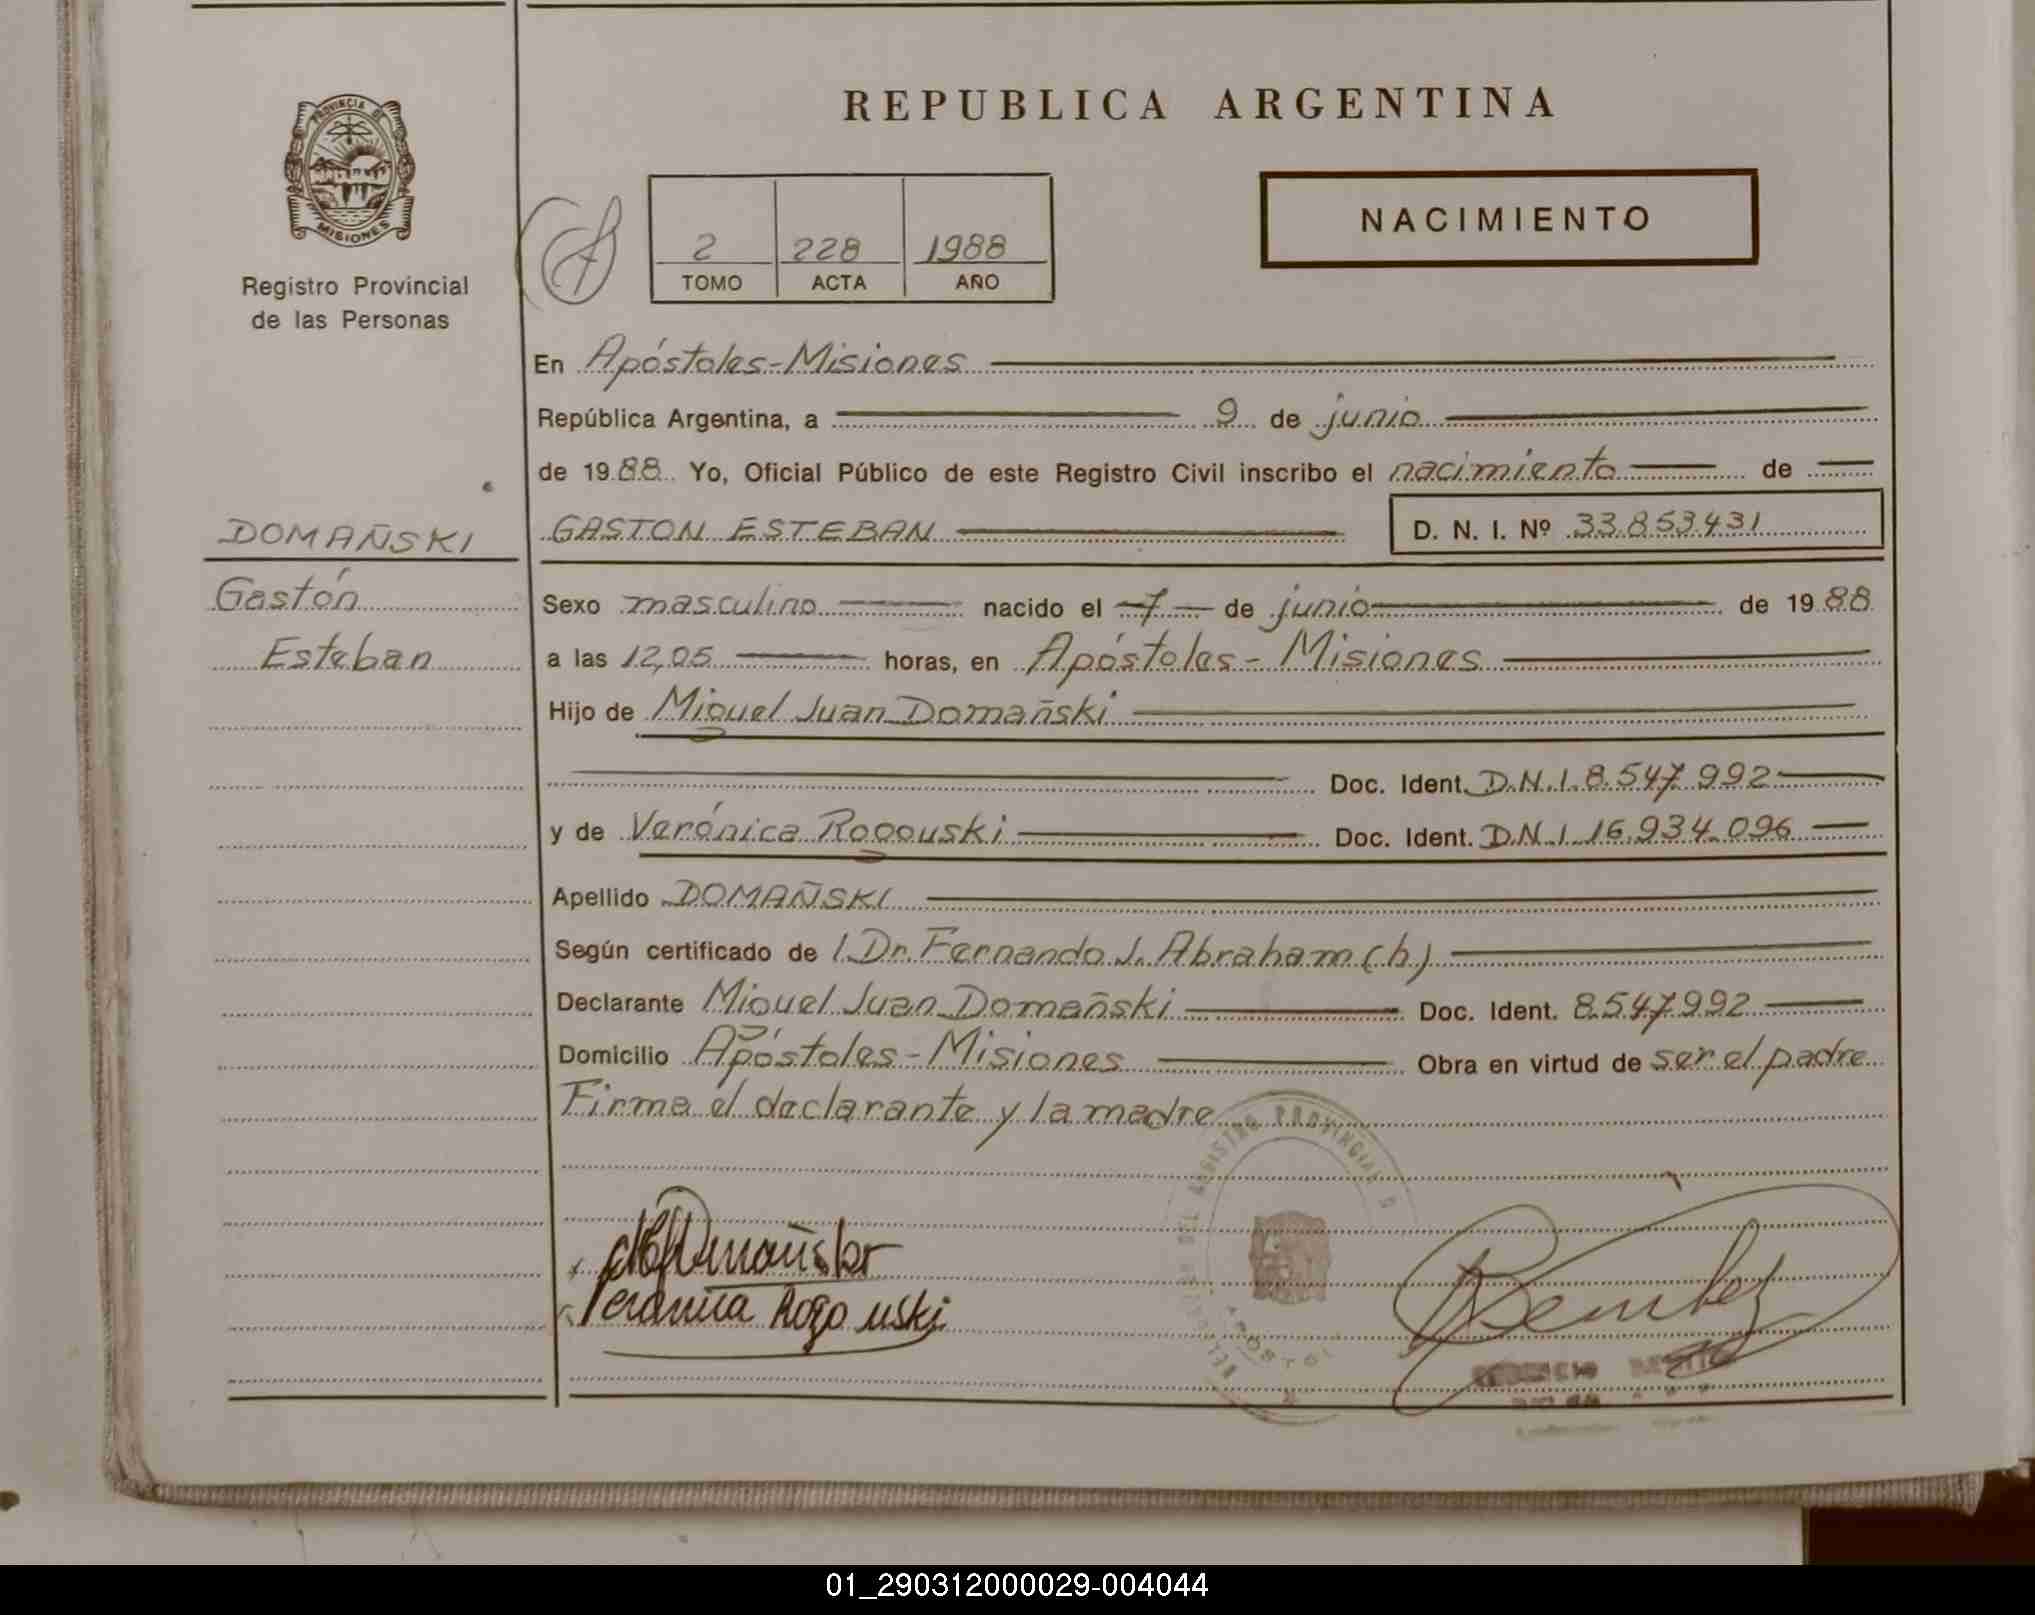 REPUBLICA ARGENTINA
PROVINCIA DE
MISIONES
Registro Provincial
de las Personas
2 228 1988
TOMO ACTA AÑO
NACIMIENTO
En Apóstoles-Misiones
República Argentina, a 9 de junio
de 1988 Yo, Oficial Público de este Registro Civil inscribo el nacimiento de
DOMAÑSKI
Gastón
Esteban
GASTON ESTEBAN D. N. I. Nº 33.853.431
Sexo masculino nacido el 7 de junio de 1988
a las 12,05 horas, en Apóstoles - Misiones
Hijo de Miguel Juan Domañski
Doc. Ident. D.N.I. 8.547.992
y de Verónica Rogouski Doc. Ident. D.N.I. 16.934.096
Apellido DOMAÑSKI
Según certificado de l Dr. Fernando J. Abraham (h)
Declarante Miguel Juan Domañski Doc. Ident. 8.547.992
Domicilio Apóstoles-Misiones Obra en virtud de ser el padre
Firma el declarante y la madre
DEL REGISTRO PROVINCIAL D
Domañski
Veronica Rogouski
01_290312000029-004044